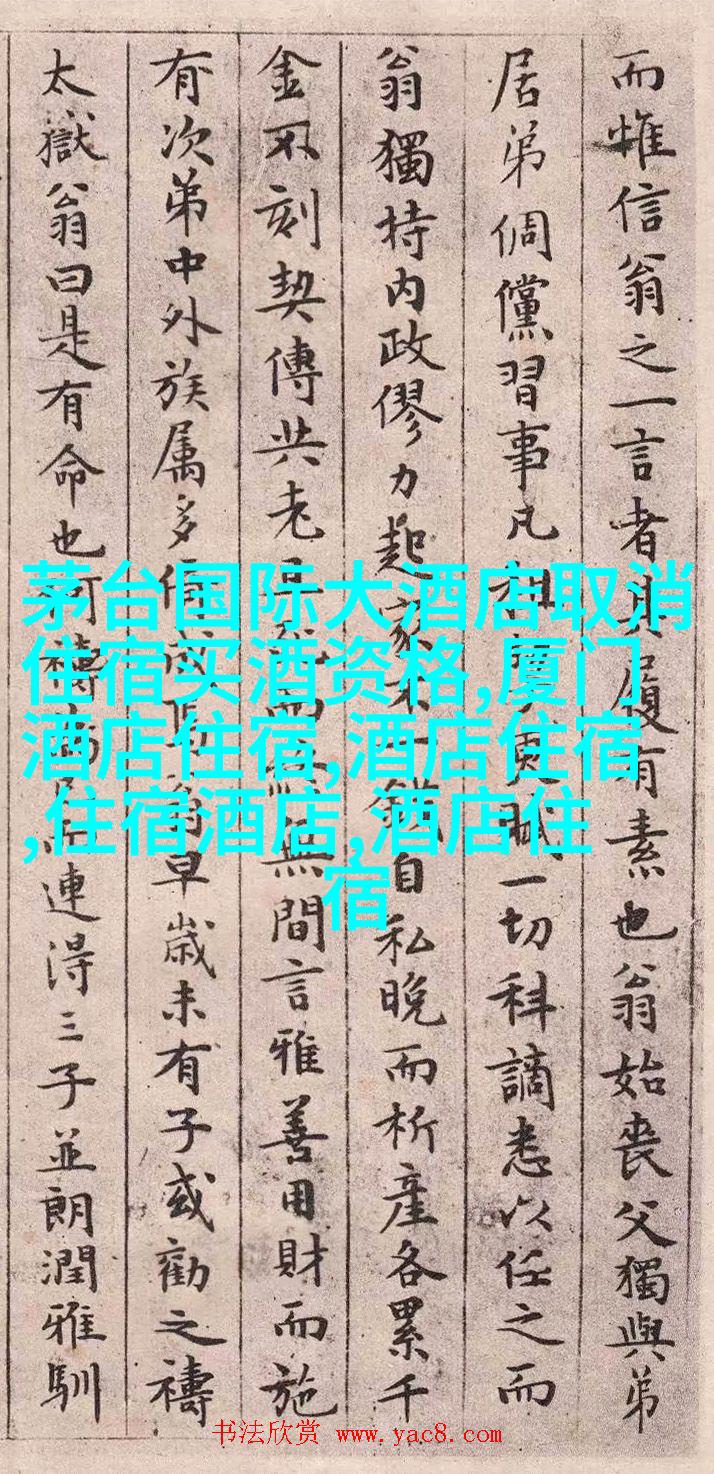 而惟信翁之一言者其履有素也翁始喪父獨與弟
居弟倜儻習事凡和一切科謫悉以任之而
翁獨持内政僇力起家不一錢自私晚而析產各累千
金不刻契傅共老無間言雅善用財而施
有次弟中外族属多翁早歲未有子或勸之禱
太嶽翁曰是有命也可禱連得三子並朗潤雅馴
茅台国际大酒店取消
住宿买酒资格,厦门
酒店住宿,酒店住宿
,住宿酒店,酒店住
宿
书法欣赏 www.yac8.com